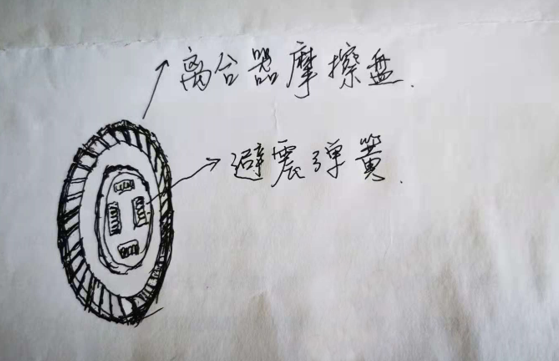 离合器摩擦盘.
避震弹簧.